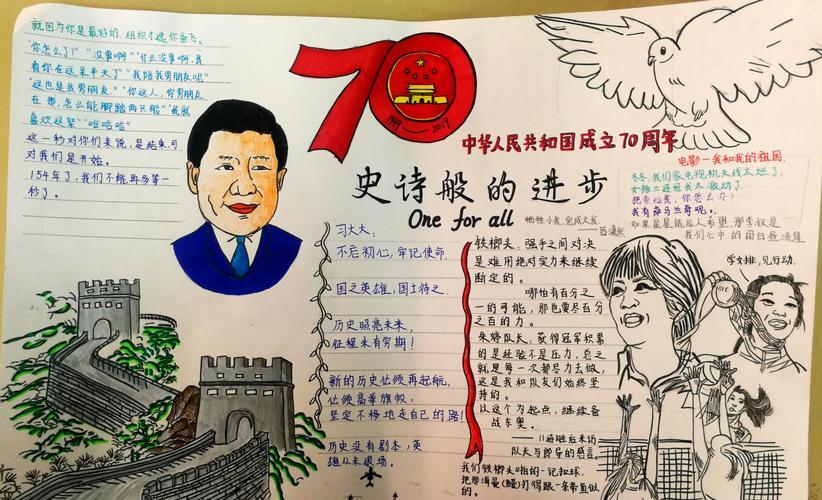 就因为你是最好的,组织才选你奋飞。
"你怎么了?""没事啊""什么没事啊,我
看你在这呆半天了""我陪我男朋友呢"
"这也是我男朋友""你这人,你男朋友
在那,怎么能脚踏两只船""我就
喜欢这架""哈哈哈"
这一秒对你们来说,是结束,可
对我们是开始。
154年了,我们不能再多等一
秒了。
70
1949—2019
中华人民共和国成立70周年
史诗般的进步
One for all
牺牲小我,完成大我.
电影—我和我的祖国.
冬冬,我们家电视机天线太烂了,
女排三连冠我太激动了.
我有薛马兰哥呢。
学女排,见行动.
习大大:
不忘初心,牢记使命.
国之英雄,国士待之.
历史照亮未来,
征程未有穷期!
新的历史伫倾再起航,
伫倾高举旗帜,
坚定不移地走自己的路!
历史没有剧本,英
雄从未退场。
铁榔头,强手之间对决
是难用绝对实力来继续
断定的。
哪怕有百分之
一的可能,那也要尽百分
之百的力。
朱婷队长,获得冠军积累
的是经验不是压力,总之
就是每一次都尽力去做,
这是我和队友们始终坚
持的。
以这个为起点,继续备
战东奥。
——11连胜后来访
队长与郎导的感言.
我们铁榔头唯的一记扣球.